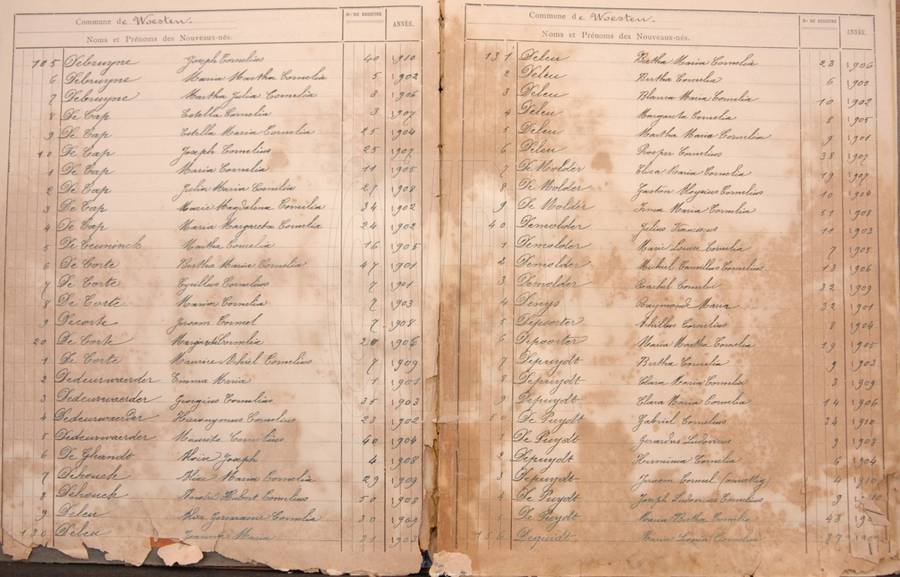 Commune de Woesten. No DE REGISTRE ANNÉE.
Noms et Prénoms des Nouveaux-nés.
105 Debruyne Joseph Cornelius 40 1910
6 Debruyne Maria Martha Cornelia 5 1902
7 Debruyne Martha Julia Cornelia 3 1906
8 De Cap Estella Cornelia 3 1907
9 De Cap Estella Maria Cornelia 15 1904
10 De Cap Joseph Cornelius 25 1907
1 De Cap Maria Cornelia 11 1905
2 De Cap Julia Maria Cornelia 27 1908
3 De Cap Marie Magdalena Cornelia 34 1902
4 De Cap Maria Margareta Cornelia 24 1902
5 De Ceuninck Martha Cornelia 16 1905
6 De Corte Bertha Maria Cornelia 47 1901
7 De Corte Cyrillus Cornelius 7 1901
8 De Corte Maria Cornelia 2 1903
9 Decorte Jerome Cornel 7 1908
20 De Corte Margareta Cornelia 20 1906
1 De Corte Maurice Achiel Cornelius 7 1909
2 Dedeurwaerder Emma Maria 1
3 Dedeurwaerder Georgius Cornelius 35 1903
4 Dedeurwaerder Hieronymus Cornelius 23 1902
5 Dedeurwaerder Maurits Cornelius 40 1904
6 De Ghandt Joseph 4 1908
7 Dehouck Maria Cornelia 29 1909
8 Dehouck Hubert Cornelius 50 1908
9 Deleu Germaine Cornelia 30
130 Deleu Maria 21 1903
Commune de Woesten. No DE REGISTRE ANNÉE.
Noms et Prénoms des Nouveaux-nés.
131 Deleu Bertha Maria Cornelia 23 1906
2 Deleu Bertha Cornelia 6 1900
3 Deleu Blanca Maria Cornelia 10 1902
4 Deleu Margareta Cornelia 8 1905
5 Deleu Martha Maria Cornelia 9 1901
6 Deleu Prosper Cornelius 38 1907
7 De Molder Elisa Maria Cornelia 19 1907
8 De Molder Gaston Aloysius Cornelius 10 1904
9 De Molder Irma Maria Cornelia 51 1908
40 Demolder Julius Franciscus 11 1903
1 Demolder Marie Louise Cornelia 7 1905
2 Demolder Michiel Camillus Cornelius 13 1906
3 Demolder Rachel Cornelia 32 1909
4 Denys Raymond Maria 32 1901
5 Depoorter Achilles Cornelius 8 1904
6 Depoorter Maria Martha Cornelia 19 1905
7 Depuydt Bertha Cornelia 9 1903
8 Depuydt Clara Maria Cornelia 3 1909
9 Depuydt Clara Maria Cornelia 14 1906
50 De Puydt Gabriel Cornelius 34 1910
1 De Puydt Gerardus Ludovicus 9 1908
2 Depuydt Herminia Cornelia 6 1904
3 Depuydt Jerome Cornel 4 1910
4 De Puydt Joseph Ludovicus Cornelius 9
De Puydt Maria Bertha Cornelia 48
156 Depuidt Maria Leonia Cornelia 27